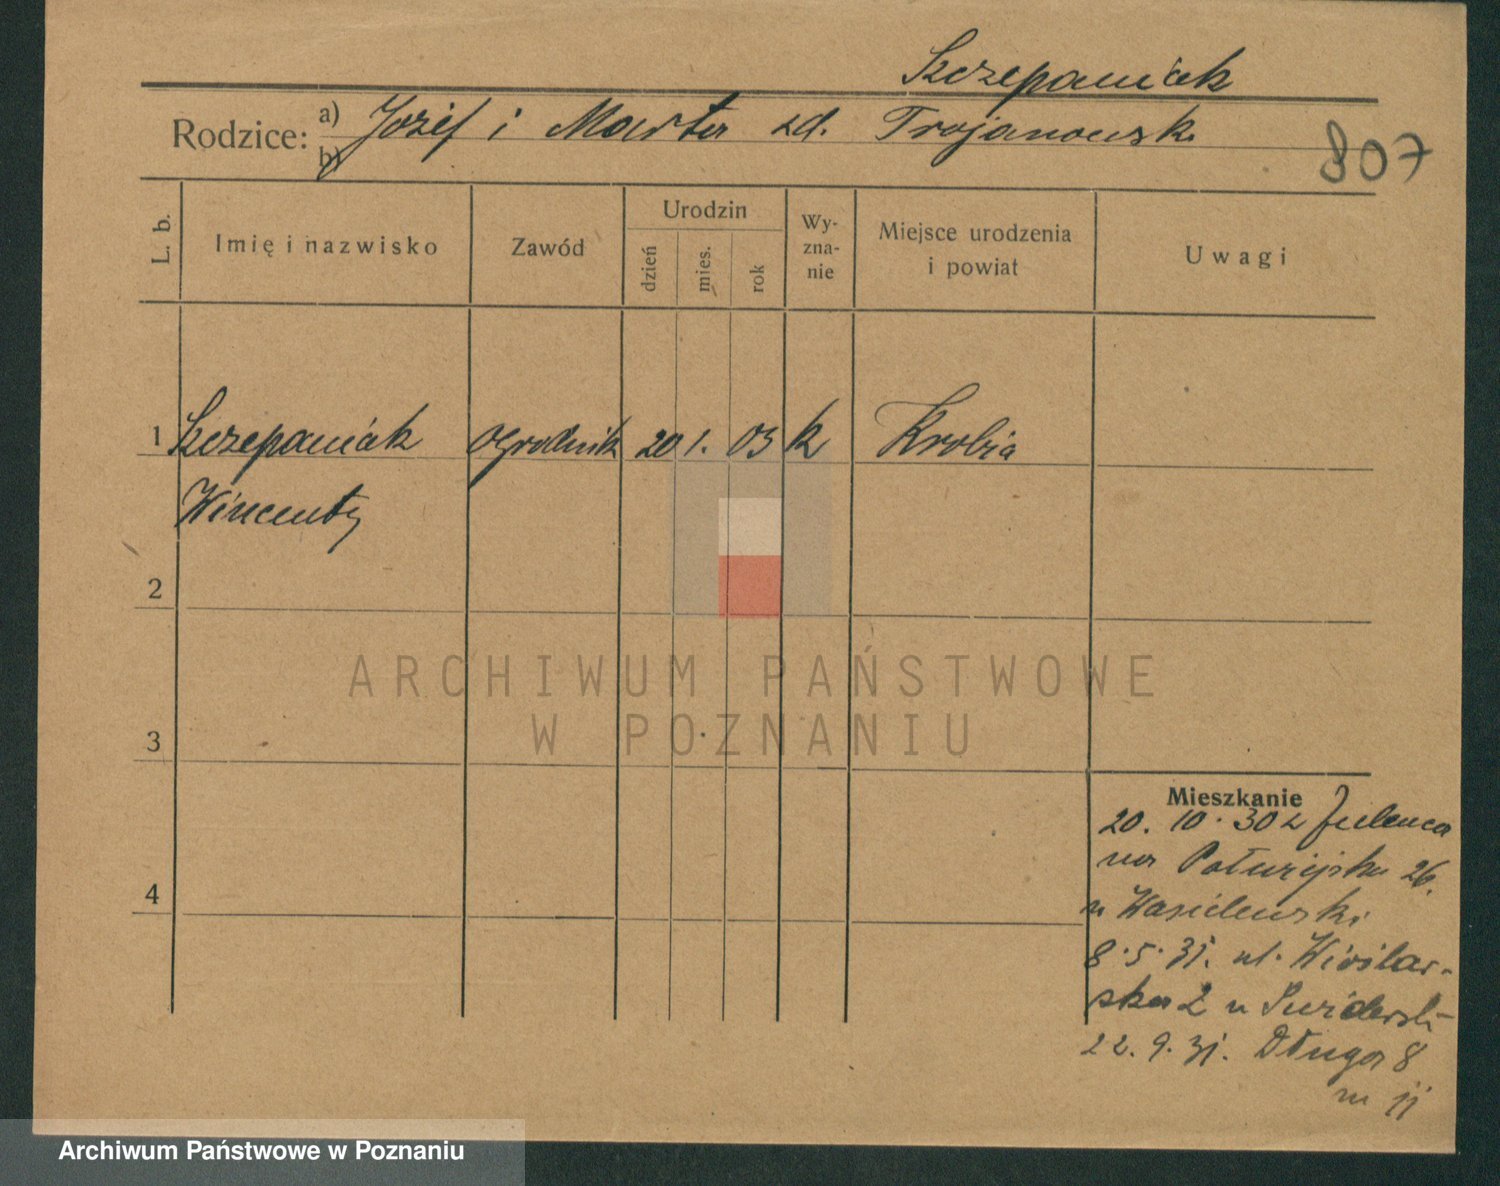 Szczepaniak
Rodzice: a) Józef i Marta zd. Trojanowsk.
b)
807
L. b.
Imię i nazwisko
Zawód
Urodzin
dzień
mies.
rok
Wy-
zna-
nie
Miejsce urodzenia
i powiat
Uwagi
1 Szczepaniak ogrodnik 20 1. 03 k Krobia
Wincenty
2
3
4
ARCHIWUM PAŃSTWOWE
W POZNANIU
Mieszkanie
20. 10. 30 z
na 26.
u Wasilewski
8. 5. 31. ul. Wioślar-
ska 2 u Świderski
22. 9. 31. Długa 8
m 11
Archiwum Państwowe w Poznaniu